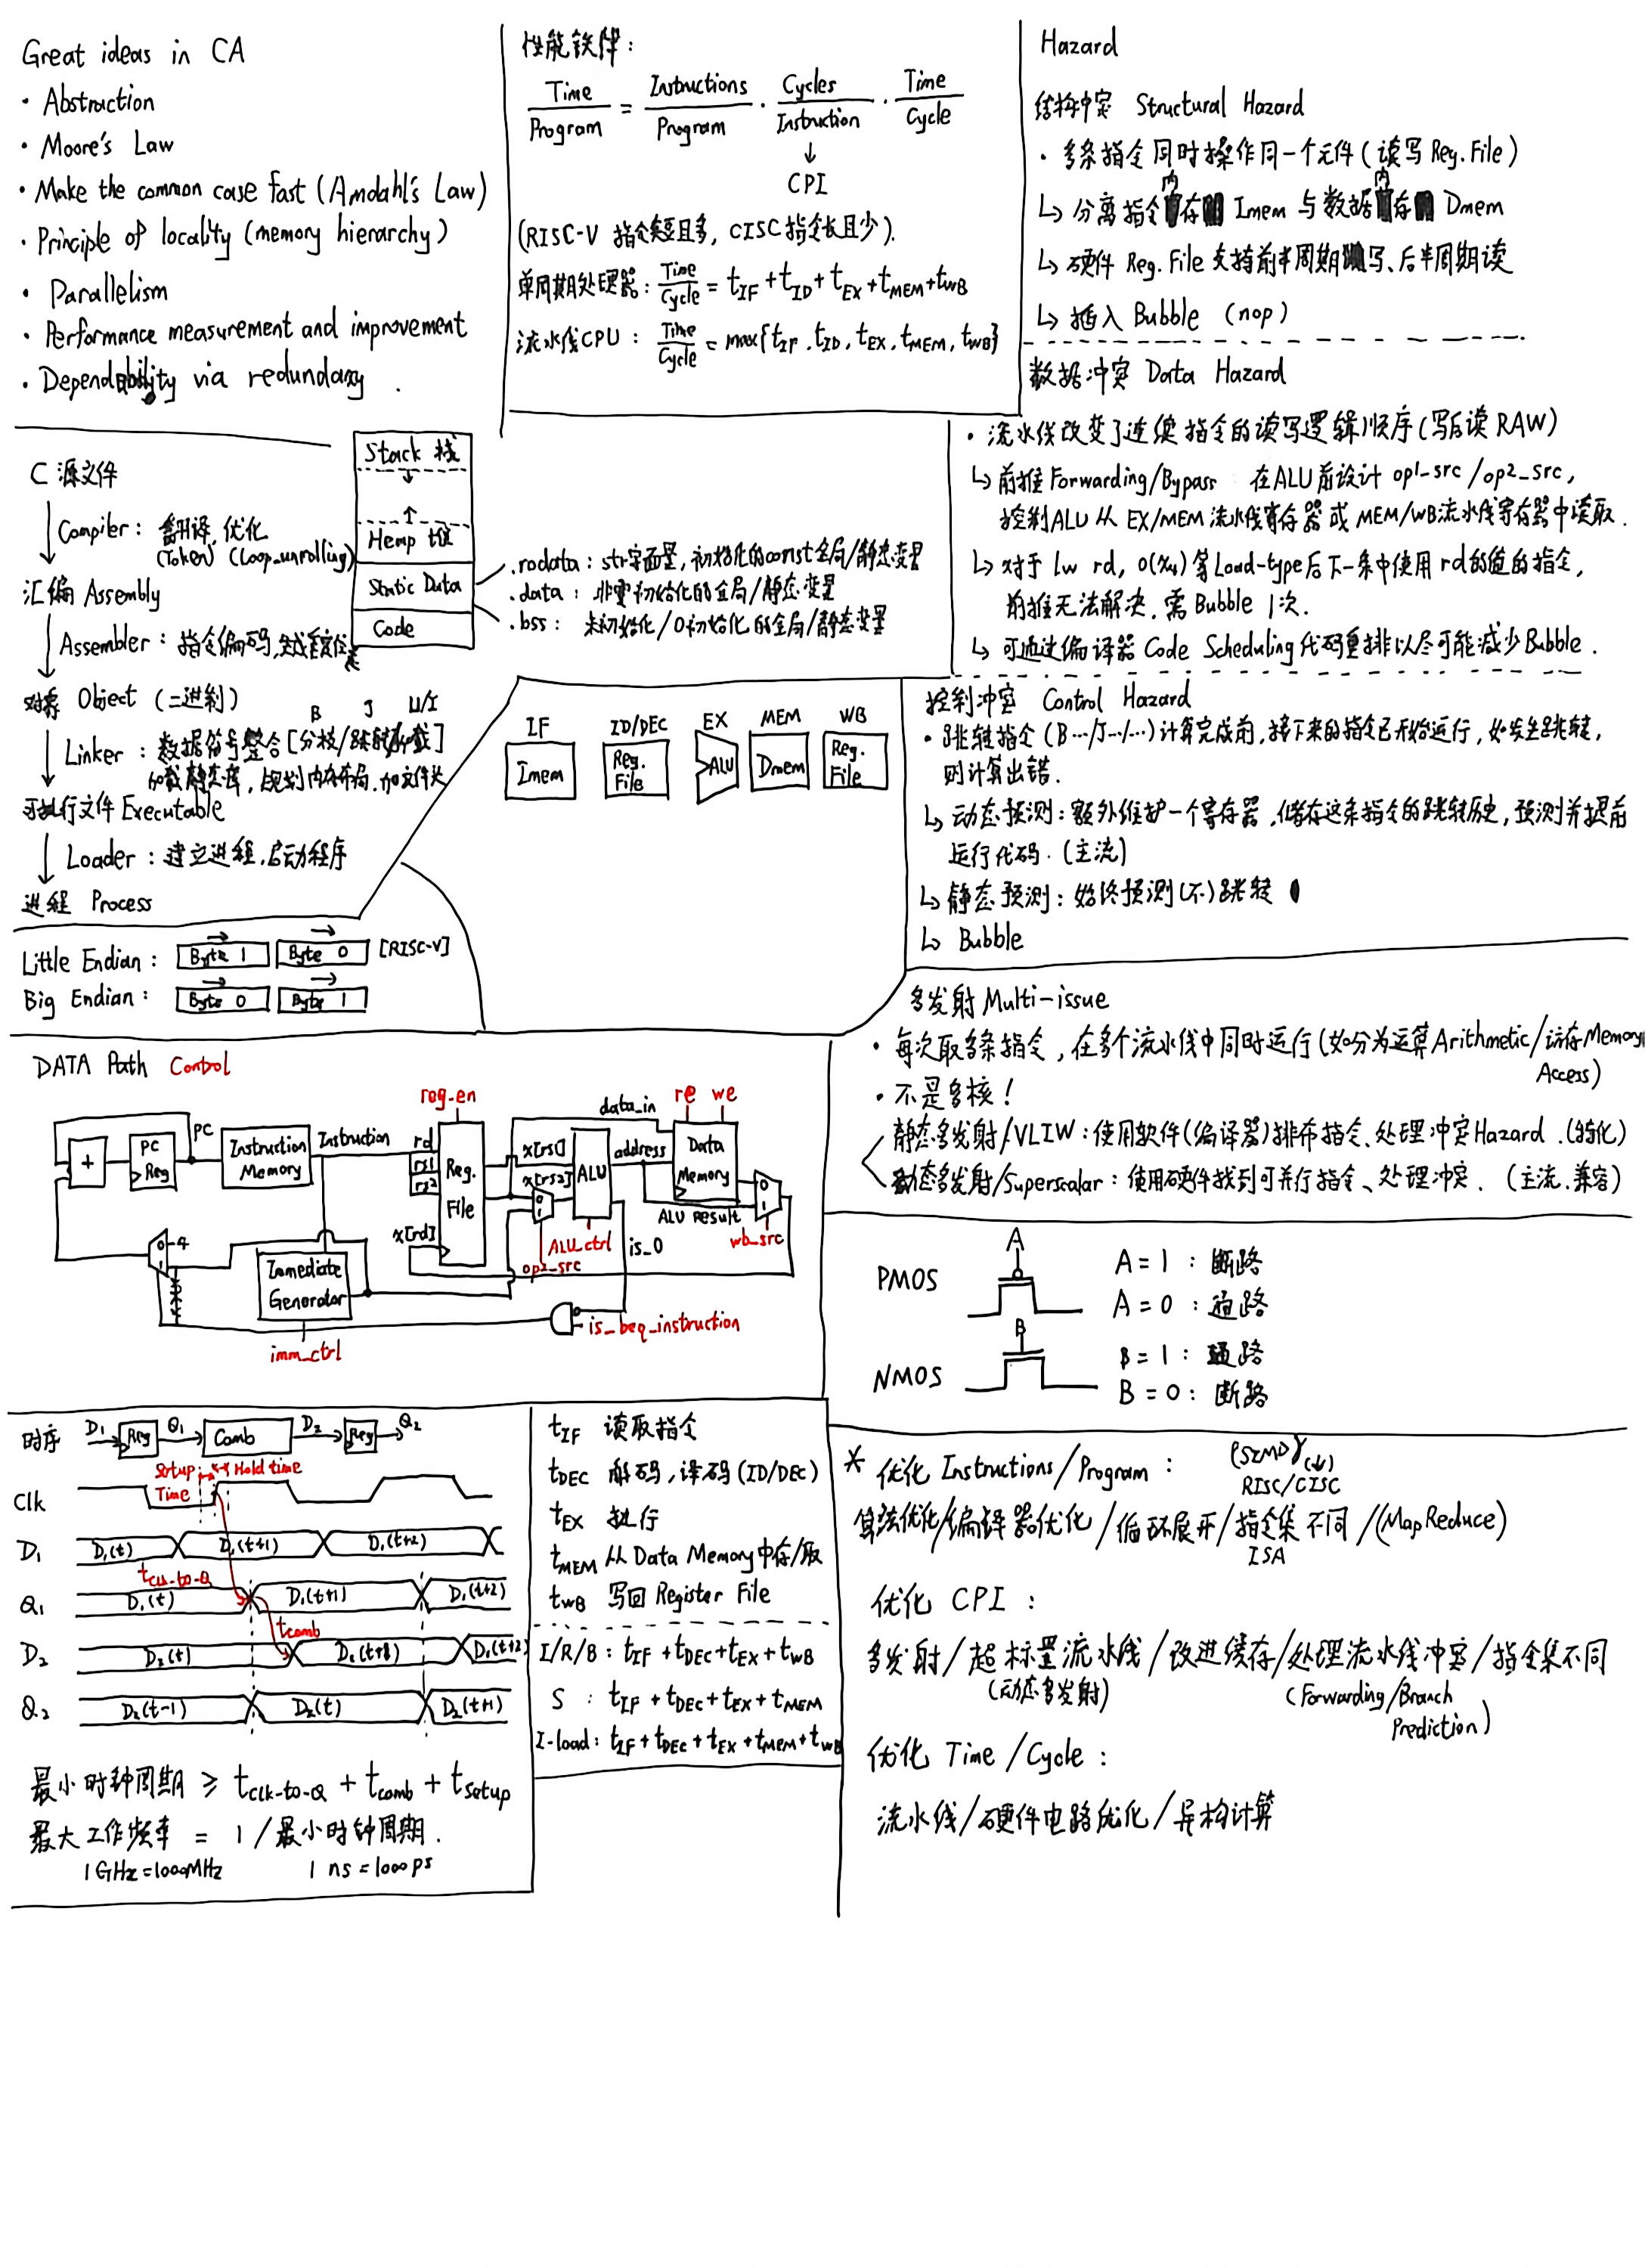 Great ideas in CA
· Abstraction
· Moore's Law
· Make the common case fast (Amdahl's Law)
· Principle of locality (memory hierarchy)
· Parallelism
· Performance measurement and improvement
· Dependability via redundancy.
性能铁律:
Time/Program = Instructions/Program · Cycles/Instruction · Time/Cycle
↓
CPI
(RISC-V 指令短且多, CISC 指令长且少).
单周期处理器: Time/Cycle = tIF + tID + tEX + tMEM + tWB
流水线CPU: Time/Cycle = max{tIF, tID, tEX, tMEM, tWB}
Hazard
结构冲突 Structural Hazard
· 多条指令同时操作同一个元件(读写 Reg. File)
↳ 分离指令内存 Imem 与数据内存 Dmem
↳ 硬件 Reg. File 支持前半周期写、后半周期读
↳ 插入 Bubble (nop)
数据冲突 Data Hazard
· 流水线改变了连续指令的读写逻辑顺序(写后读 RAW)
↳ 前推 Forwarding/Bypass 在ALU前设计 op1-src / op2_src,
控制ALU 从 EX/MEM 流水线寄存器 或 MEM/WB流水线寄存器中读取.
↳ 对于 lw rd, 0(x4) 等 Load-type后下一条中使用 rd的值的指令,
前推无法解决, 需 Bubble 1次.
↳ 可通过编译器 Code Scheduling 代码重排以尽可能减少Bubble.
控制冲突 Control Hazard
· 跳转指令 (B…/J…/…) 计算完成前, 接下来的指令已开始运行, 如发生跳转,
则计算出错.
↳ 动态预测: 额外维护一个寄存器, 储存这条指令的跳转历史, 预测并提前
运行代码. (主流)
↳ 静态预测: 始终预测(不)跳转
↳ Bubble
C 源文件
Compiler: 翻译, 优化
(Token) (Loop_unrolling)
汇编 Assembly
Assembler: 指令编码, 生成重定位表
对象 Object (二进制)
B J U/I
Linker: 数据符号整合 [分枝/跳转/加载]
加载静态库, 规划内存布局, 加文件头
可执行文件 Executable
Loader: 建立进程, 启动程序
进程 Process
Stack 栈
↓
↑
Hemp 堆
Static Data
Code
.rodata: str字面量, 初始化的const全局/静态变量
.data: 非零初始化的全局/静态变量
.bss: 未初始化/0初始化的全局/静态变量
IF ID/DEC EX MEM WB
Imem Reg. File ALU Dmem Reg. File
Little Endian: Byte 1 Byte 0 [RISC-V]
Big Endian: Byte 0 Byte 1
多发射 Multi-issue
· 每次取多条指令, 在多个流水线中同时运行 (如分为运算Arithmetic/访存Memory
Access)
· 不是多核!
静态多发射/VLIW: 使用软件(编译器)排布指令、处理冲突Hazard. (特化)
动态多发射/Superscalar: 使用硬件找到可并行指令、处理冲突. (主流, 兼容)
DATA Path Control
reg-en
data_in
re we
+
PC Reg
PC
Instruction Memory
Instruction
rd
rs1
rs2
x[rd]
Reg. File
x[rs1]
x[rs2]
0
1
ALU
address
Data Memory
0
1
ALU result
wb_src
ALU_ctrl
op2_src
is_0
0
1
4
Immediate Generator
imm_ctrl
is_beq_instruction
PMOS
A
A = 1 : 断路
A = 0 : 通路
NMOS
B
B = 1 : 通路
B = 0 : 断路
时序 D1 Reg Q1 Comb D2 Reg Q2
Setup Time
Hold time
Clk
D1 D1(t) D1(t+1) D1(t+2)
tClk-to-Q
Q1 D1(t) D1(t+1) D1(t+2)
tcomb
D2 D2(t) D2(t+2)
Q2 D2(t-1) D2(t) D2(t+1)
最小时钟周期 ≥ tClk-to-Q + tcomb + tSetup
最大工作频率 = 1 / 最小时钟周期.
1 GHz = 1000MHz 1 ns = 1000 ps
tIF 读取指令
tDEC 解码, 译码 (ID/DEC)
tEX 执行
tMEM 从 Data Memory中存/取
tWB 写回 Register File
I/R/B: tIF + tDEC + tEX + tWB
S : tIF + tDEC + tEX + tMEM
I-load: tIF + tDEC + tEX + tMEM + tWB
* 优化 Instructions/Program:
(SIMD)
RISC/CISC
算法优化/编译器优化/循环展开/指令集不同/(MapReduce)
ISA
优化 CPI:
多发射/超标量流水线/改进缓存/处理流水线冲突/指令集不同
(动态多发射)
(Forwarding/Branch
Prediction)
优化 Time/Cycle:
流水线/硬件电路优化/异构计算